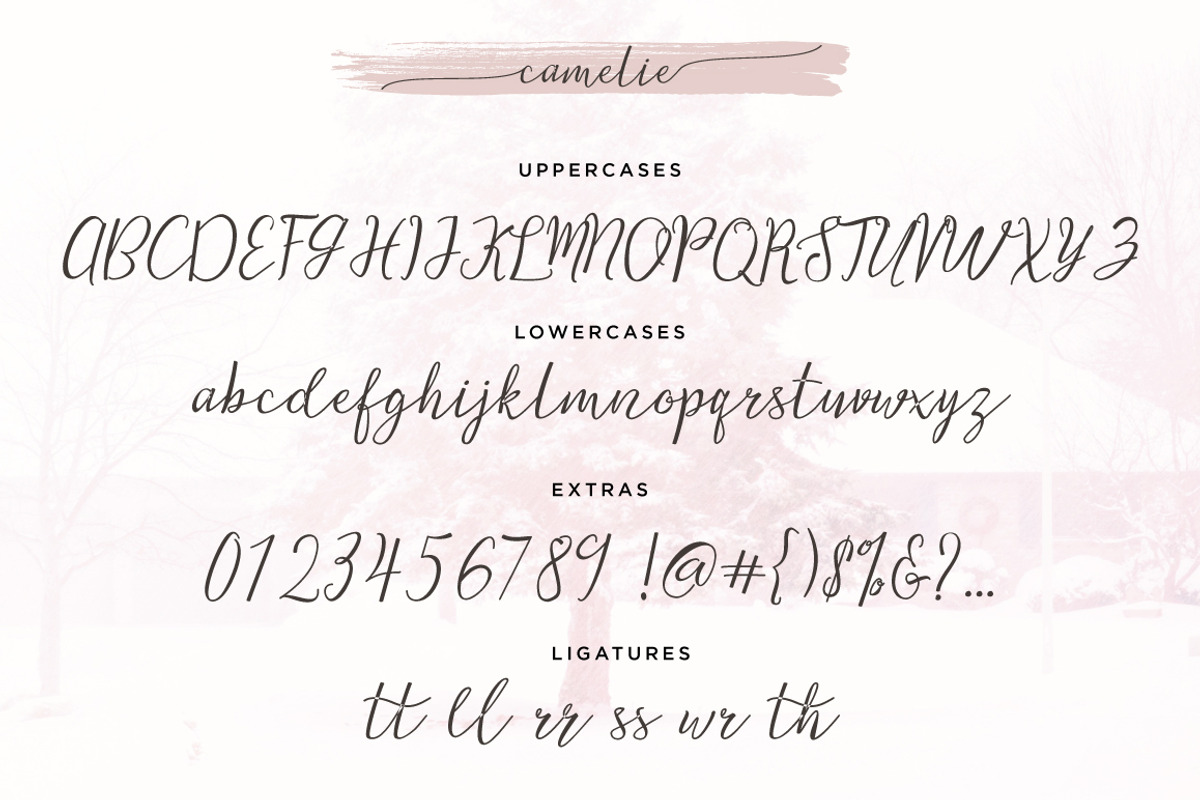 camelie
UPPERCASES
ABCDEFGHIJKLMNOPQRSTUVWXYZ
LOWERCASES
abcdefghijklmnopqrstuvwxyz
EXTRAS
0123456789 !@#{)$%&?...
LIGATURES
tt ll rr ss wr th